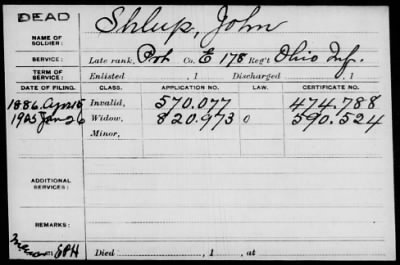 DEAD
NAME OF SOLDIER: Shlup, John
SERVICE: Late rank, Pvt Co. E 178 Reg't Ohio Inf.
TERM OF SERVICE: Enlisted , 1 Discharged , 1
DATE OF FILING. CLASS. APPLICATION NO. LAW. CERTIFICATE NO.
1886. Apr 15 Invalid, 570.077 474.788
1925 Jan 26 Widow, 820.973 0 590.524
Minor,
ADDITIONAL SERVICES:
REMARKS:
Died , 1 , at